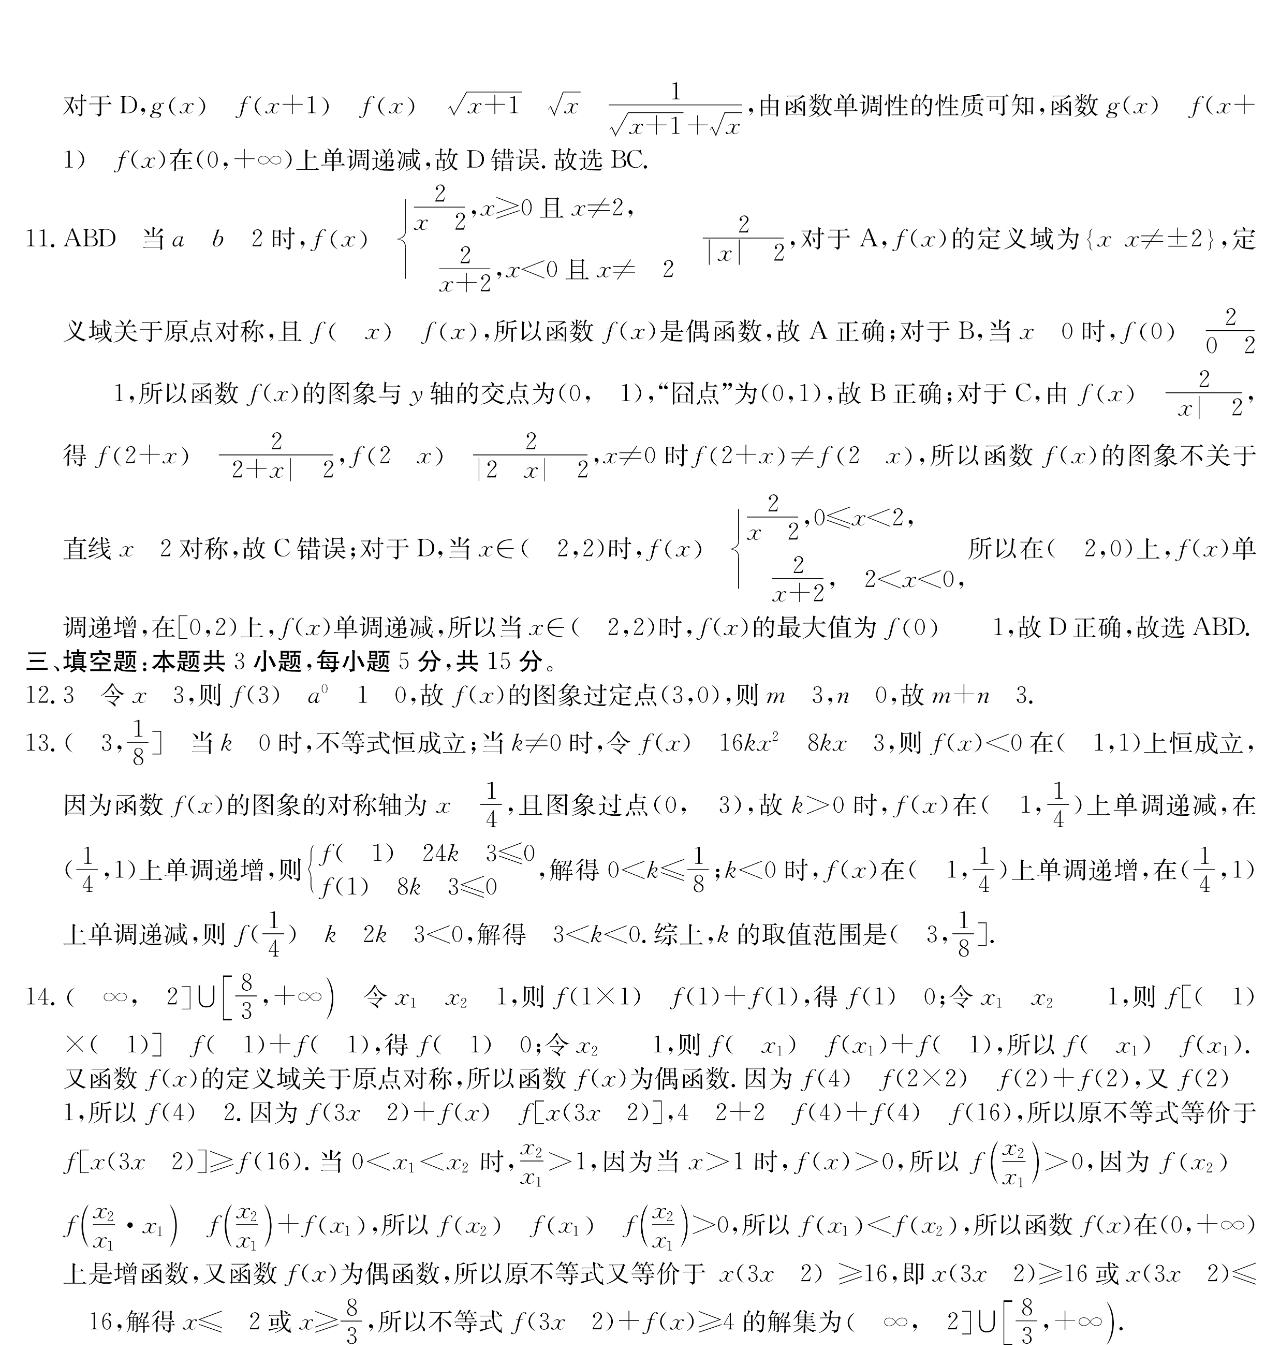 对于 D,g(x) f(x+1) f(x) √(x+1) √x 1/(√(x+1)+√x),由函数单调性的性质可知,函数 g(x) f(x+
1) f(x)在(0,+∞)上单调递减,故 D 错误. 故选 BC.
11. ABD 当 a b 2 时,f(x) { 2/(x 2),x≥0 且 x≠2, 2/(x+2),x<0 且 x≠ 2 2/(|x| 2),对于 A,f(x)的定义域为{x x≠±2},定
义域关于原点对称,且 f( x) f(x),所以函数 f(x)是偶函数,故 A 正确;对于 B,当 x 0 时,f(0) 2/(0 2)
1,所以函数 f(x)的图象与 y 轴的交点为(0, 1),“囧点”为(0,1),故 B 正确;对于 C,由 f(x) 2/(x| 2),
得 f(2+x) 2/(2+x| 2),f(2 x) 2/(|2 x| 2),x≠0 时 f(2+x)≠f(2 x),所以函数 f(x)的图象不关于
直线 x 2 对称,故 C 错误;对于 D,当 x∈( 2,2)时,f(x) { 2/(x 2),0≤x<2, 2/(x+2), 2<x<0, 所以在( 2,0)上,f(x)单
调递增,在[0,2)上,f(x)单调递减,所以当 x∈( 2,2)时,f(x)的最大值为 f(0) 1,故 D 正确,故选 ABD.
三、填空题:本题共 3 小题,每小题 5 分,共 15 分。
12. 3 令 x 3,则 f(3) a⁰ 1 0,故 f(x)的图象过定点(3,0),则 m 3,n 0,故 m+n 3.
13. ( 3,1/8] 当 k 0 时,不等式恒成立;当 k≠0 时,令 f(x) 16kx² 8kx 3,则 f(x)<0 在( 1,1)上恒成立,
因为函数 f(x)的图象的对称轴为 x 1/4,且图象过点(0, 3),故 k>0 时,f(x)在( 1,1/4)上单调递减,在
(1/4,1)上单调递增,则{ f( 1) 24k 3≤0 f(1) 8k 3≤0 ,解得 0<k≤1/8;k<0 时,f(x)在( 1,1/4)上单调递增,在(1/4,1)
上单调递减,则 f(1/4) k 2k 3<0,解得 3<k<0. 综上,k 的取值范围是( 3,1/8].
14. ( ∞, 2]∪[8/3,+∞) 令 x₁ x₂ 1,则 f(1×1) f(1)+f(1),得 f(1) 0;令 x₁ x₂ 1,则 f[( 1)
×( 1)] f( 1)+f( 1),得 f( 1) 0;令 x₂ 1,则 f( x₁) f(x₁)+f( 1),所以 f( x₁) f(x₁).
又函数 f(x)的定义域关于原点对称,所以函数 f(x)为偶函数. 因为 f(4) f(2×2) f(2)+f(2),又 f(2)
1,所以 f(4) 2. 因为 f(3x 2)+f(x) f[x(3x 2)],4 2+2 f(4)+f(4) f(16),所以原不等式等价于
f[x(3x 2)]≥f(16). 当 0<x₁<x₂ 时,x₂/x₁>1,因为当 x>1 时,f(x)>0,所以 f(x₂/x₁)>0,因为 f(x₂)
f(x₂/x₁·x₁) f(x₂/x₁)+f(x₁),所以 f(x₂) f(x₁) f(x₂/x₁)>0,所以 f(x₁)<f(x₂),所以函数 f(x)在(0,+∞)
上是增函数,又函数 f(x)为偶函数,所以原不等式又等价于 x(3x 2) ≥16,即 x(3x 2)≥16 或 x(3x 2)≤
16,解得 x≤ 2 或 x≥8/3,所以不等式 f(3x 2)+f(x)≥4 的解集为( ∞, 2]∪[8/3,+∞).